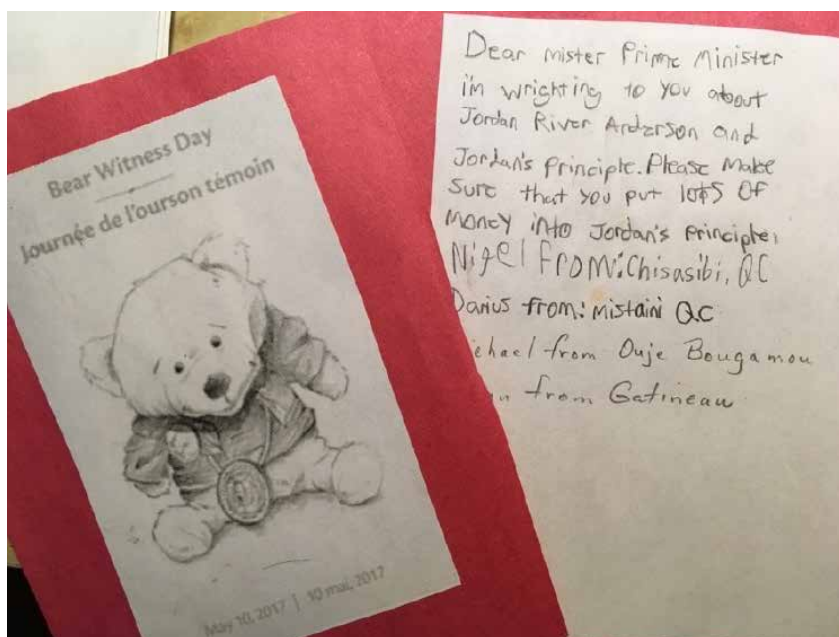 Bear Witness Day
Journée de l'ourson témoin
May 10, 2017 | 10 mai, 2017
Dear mister Prime Minister
i'm wrighting to you about
Jordan River Anderson and
Jordan's Principle. Please make
sure that you put lots of
money into Jordan's principle,
Nigel From: Chisasibi, QC
Darius from: mistaini QC
from Ouje Bougamou
from Gatineau